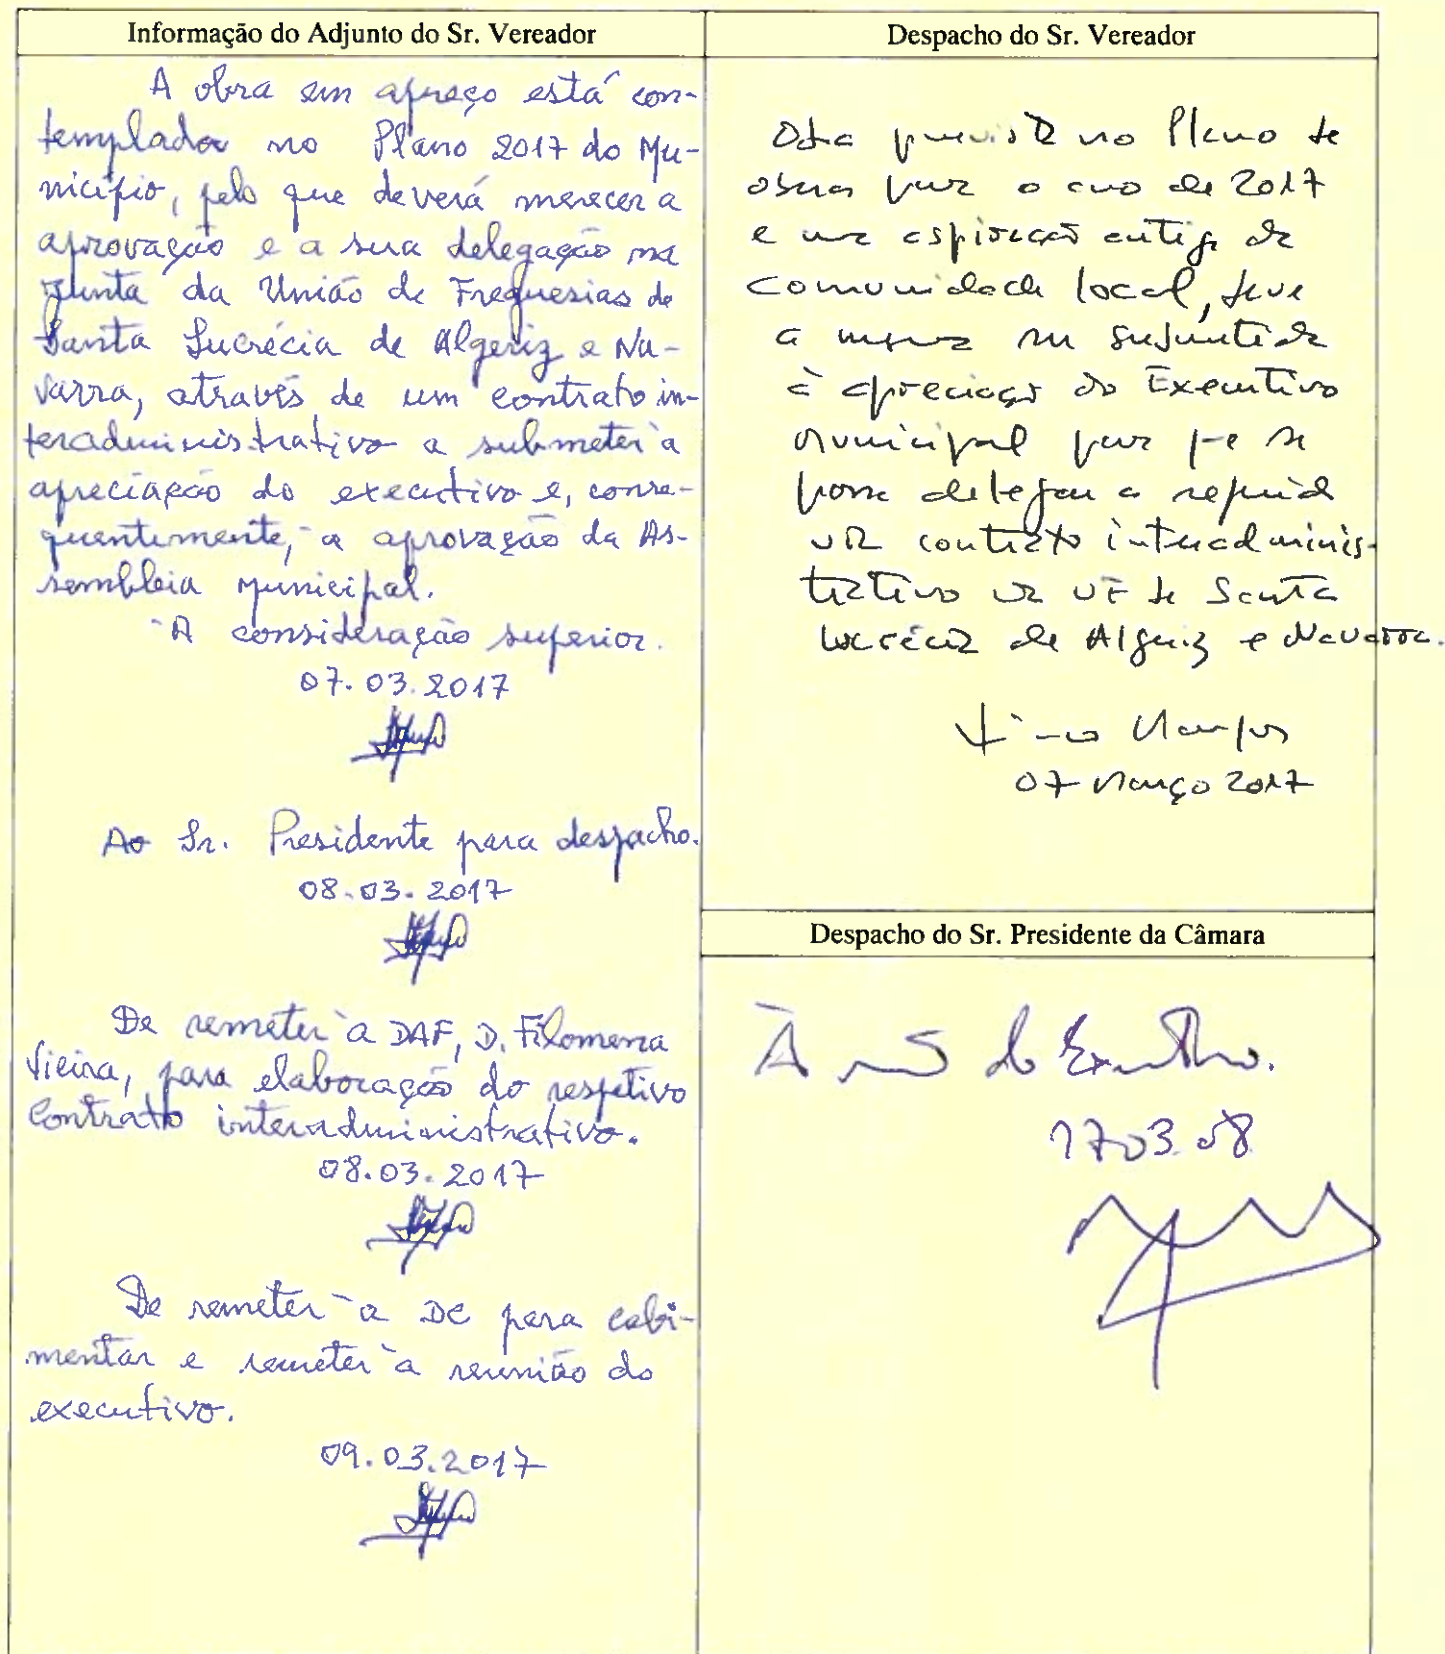 Informação do Adjunto do Sr. Vereador
A obra em apreço está con-
templada no Plano 2017 do Mu-
nicípio, pelo que deverá merecer a
aprovação e a sua delegação na
Junta da União de Freguesias de
Santa Lucrécia de Algeriz e Na-
varra, através de um contrato in-
teradministrativo a submeter à
apreciação do executivo e, conse-
quentemente, à aprovação da As-
sembleia Municipal.
À consideração superior.
07.03.2017
Ao Sr. Presidente para despacho.
08.03.2017
De remeter à DAF, D. Filomena
Vieira, para elaboração do respetivo
Contrato interadministrativo.
08.03.2017
De remeter à DC para cabi-
mentar e remeter à reunião do
executivo.
09.03.2017
Despacho do Sr. Vereador
Obra prevista no Plano de
obras para o ano de 2017
e uma aspiração antiga da
comunidade local, deve
a mesma ser submetida
à apreciação do Executivo
municipal para que se
possa delegar a
contrato interadminis-
trativo na UF de Santa
Lucrécia de Algeriz e Navarra.
07 Março 2017
Despacho do Sr. Presidente da Câmara
À do Executivo.
17.03.08